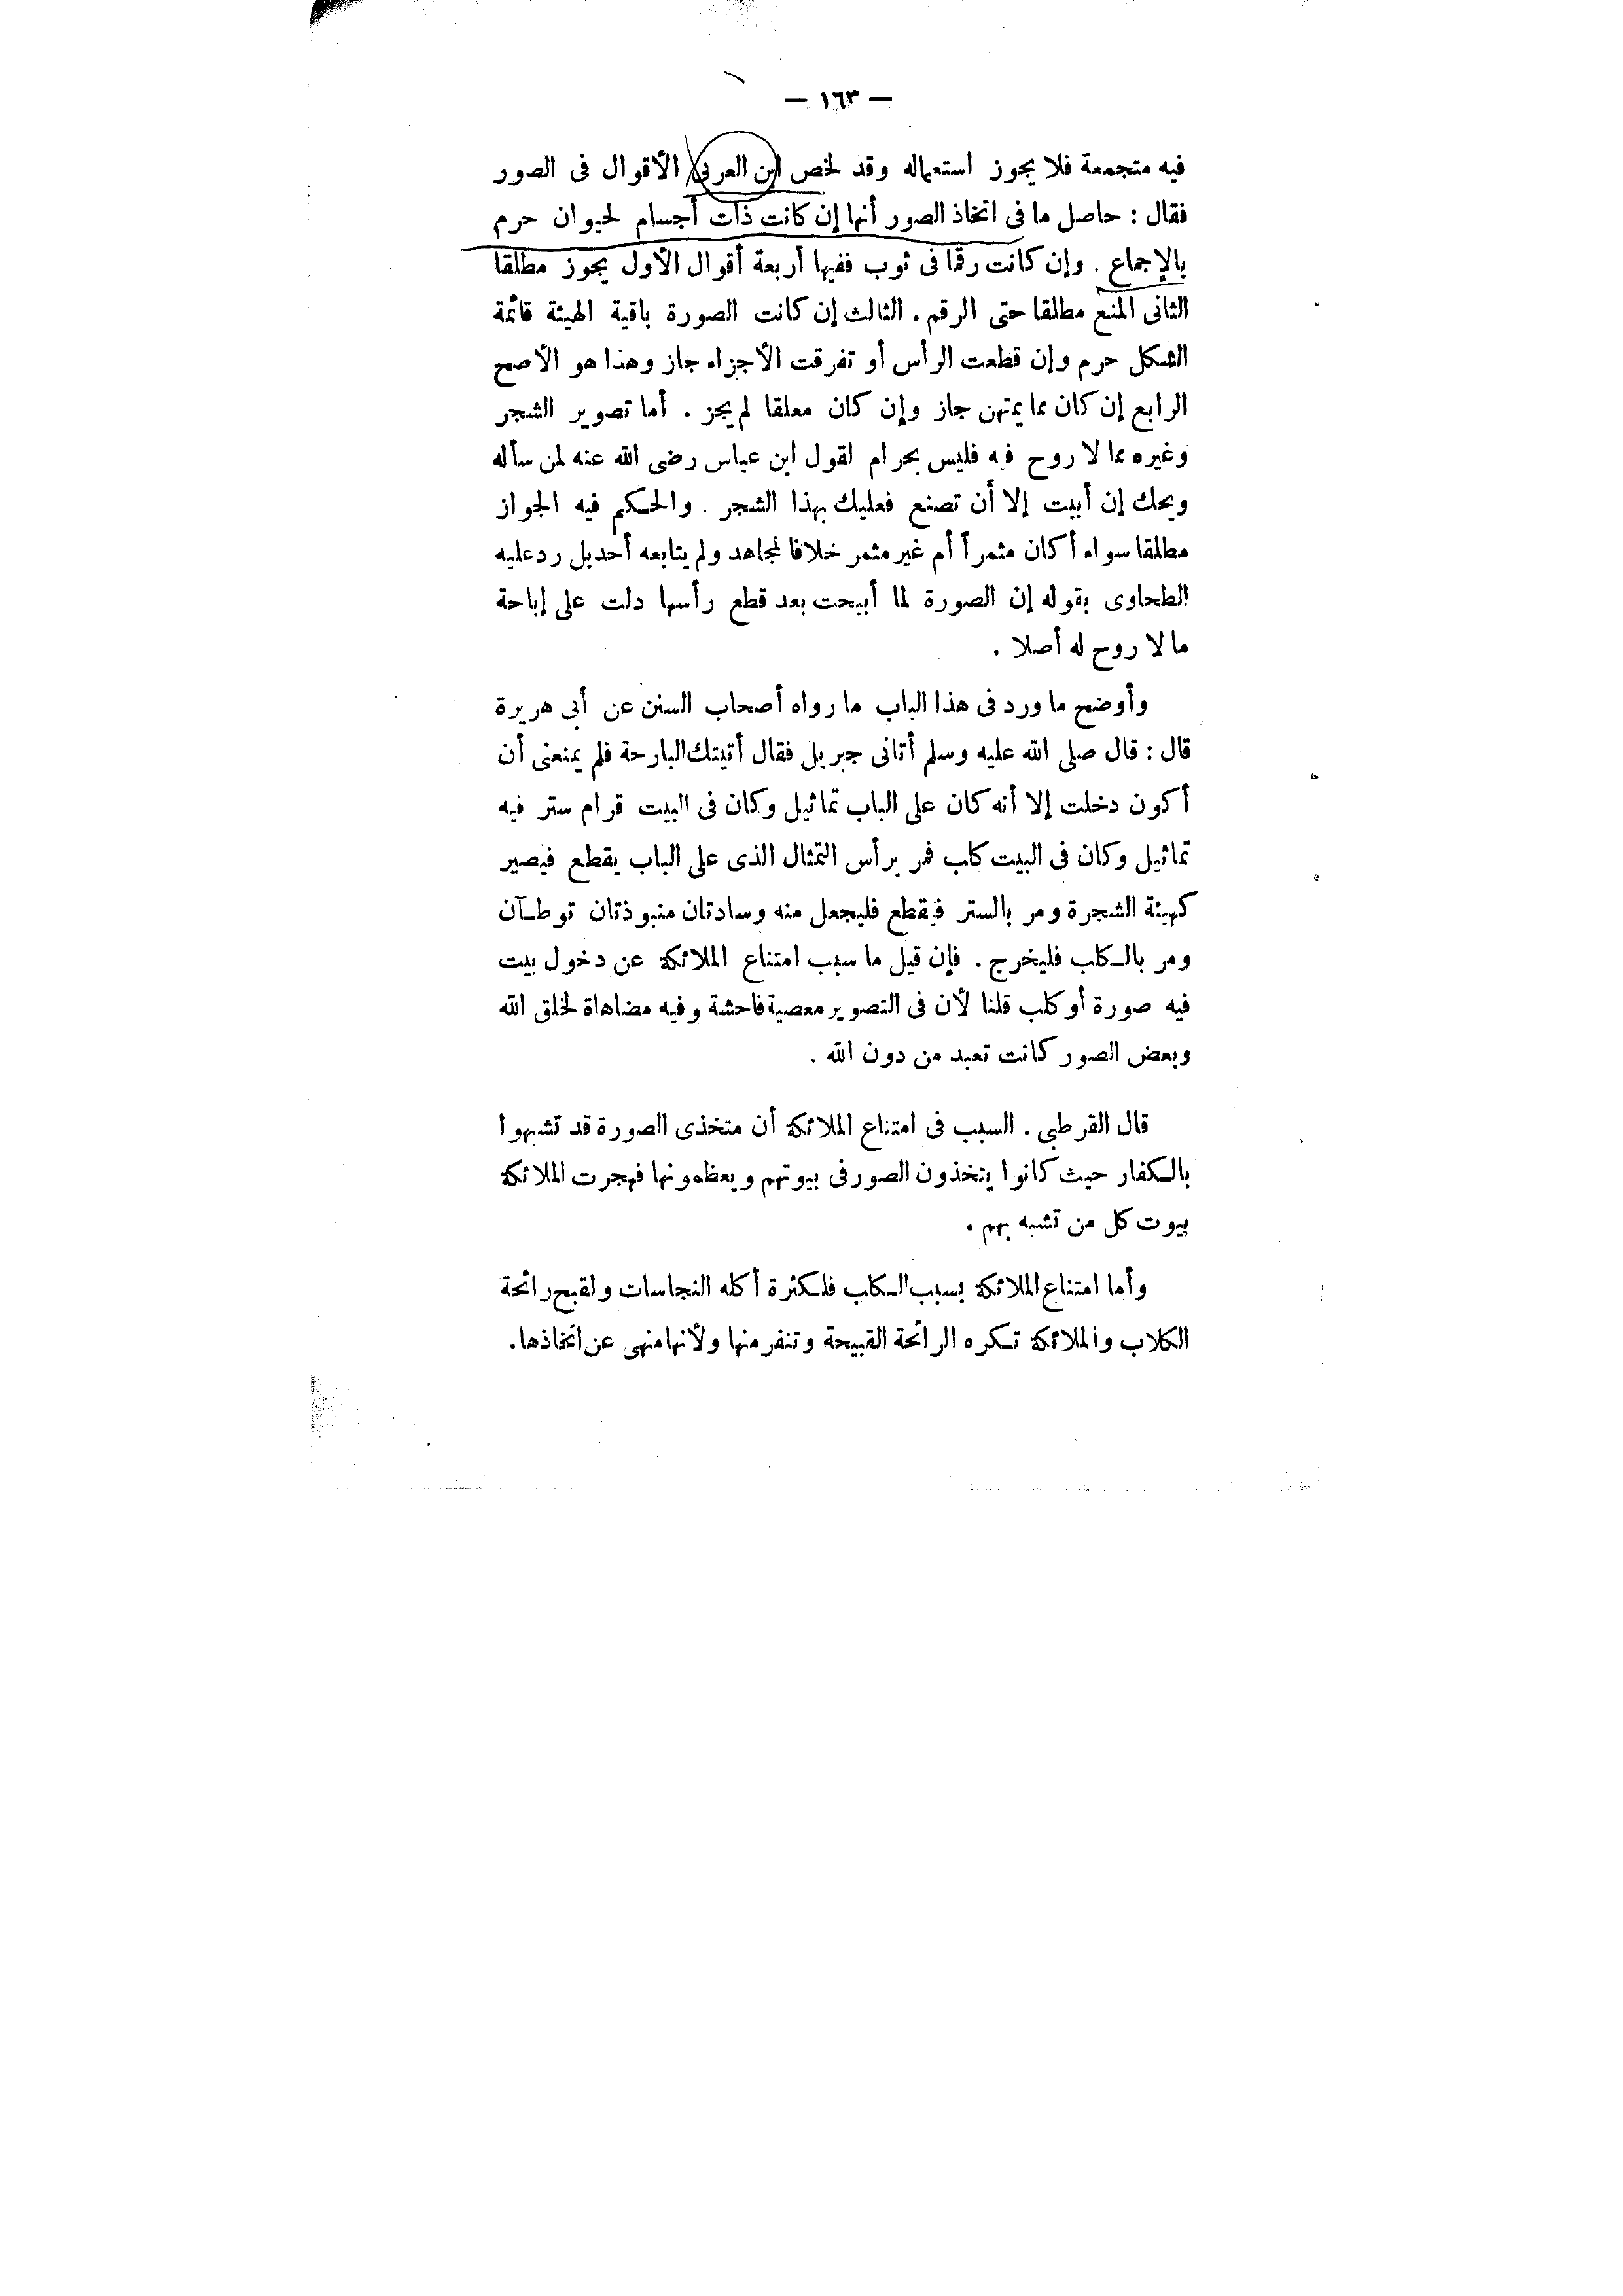 — ١٦٣ —
فيه متجمعة فلا يجوز استعماله وقد لخص ابن العربى الأقوال فى الصور
فقال : حاصل ما فى اتخاذ الصور أنها إن كانت ذات أجسام لحيوان حرم
بالإجماع . وإن كانت رقما فى ثوب ففيها أربعة أقوال الأول يجوز مطلقا
الثانى المنع مطلقا حتى الرقم . الثالث إن كانت الصورة باقية الهيئة قائمة
الشكل حرم وإن قطعت الرأس أو تفرقت الأجزاء جاز وهذا هو الأصح
الرابع إن كان مما يمتهن جاز وإن كان معلقا لم يجز . أما تصوير الشجر
وغيره مما لا روح فيه فليس بحرام لقول ابن عباس رضى الله عنه لمن سأله
ويحك إن أبيت إلا أن تصنع فعليك بهذا الشجر . والحكم فيه الجواز
مطلقا سواء أكان مثمرأ أم غير مثمر خلافا لمجاهد ولم يتابعه أحد بل رد عليه
الطحاوى بقوله إن الصورة لما أبيحت بعد قطع رأسها دلت على إباحة
ما لا روح له أصلا .
وأوضح ما ورد فى هذا الباب ما رواه أصحاب السنن عن أبى هريرة
قال : قال صلى الله عليه وسلم أتانى جبريل فقال أتيتك البارحة فلم يمنعنى أن
أكون دخلت إلا أنه كان على الباب تماثيل وكان فى البيت قرام ستر فيه
تماثيل وكان فى البيت كلب فمر برأس التمثال الذى على الباب يقطع فيصير
كهيئة الشجرة ومر بالستر فيقطع فليجعل منه وسادتان منبوذتان توطآن
ومر بالكلب فليخرج . فإن قيل ما سبب امتناع الملائكة عن دخول بيت
فيه صورة أو كلب قلنا لأن فى التصوير معصية فاحشة وفيه مضاهاة لخلق الله
وبعض الصور كانت تعبد من دون الله .
قال القرطبى . السبب فى امتناع الملائكة أن متخذى الصورة قد تشبهوا
بالكفار حيث كانوا يتخذون الصور فى بيوتهم ويعظمونها فهجرت الملائكة
بيوت كل من تشبه بهم .
وأما امتناع الملائكة بسبب الكلب فلكثرة أكله النجاسات ولقبح رائحة
الكلاب والملائكة تكره الرائحة القبيحة وتنفر منها ولأنها منهى عن اتخاذها .